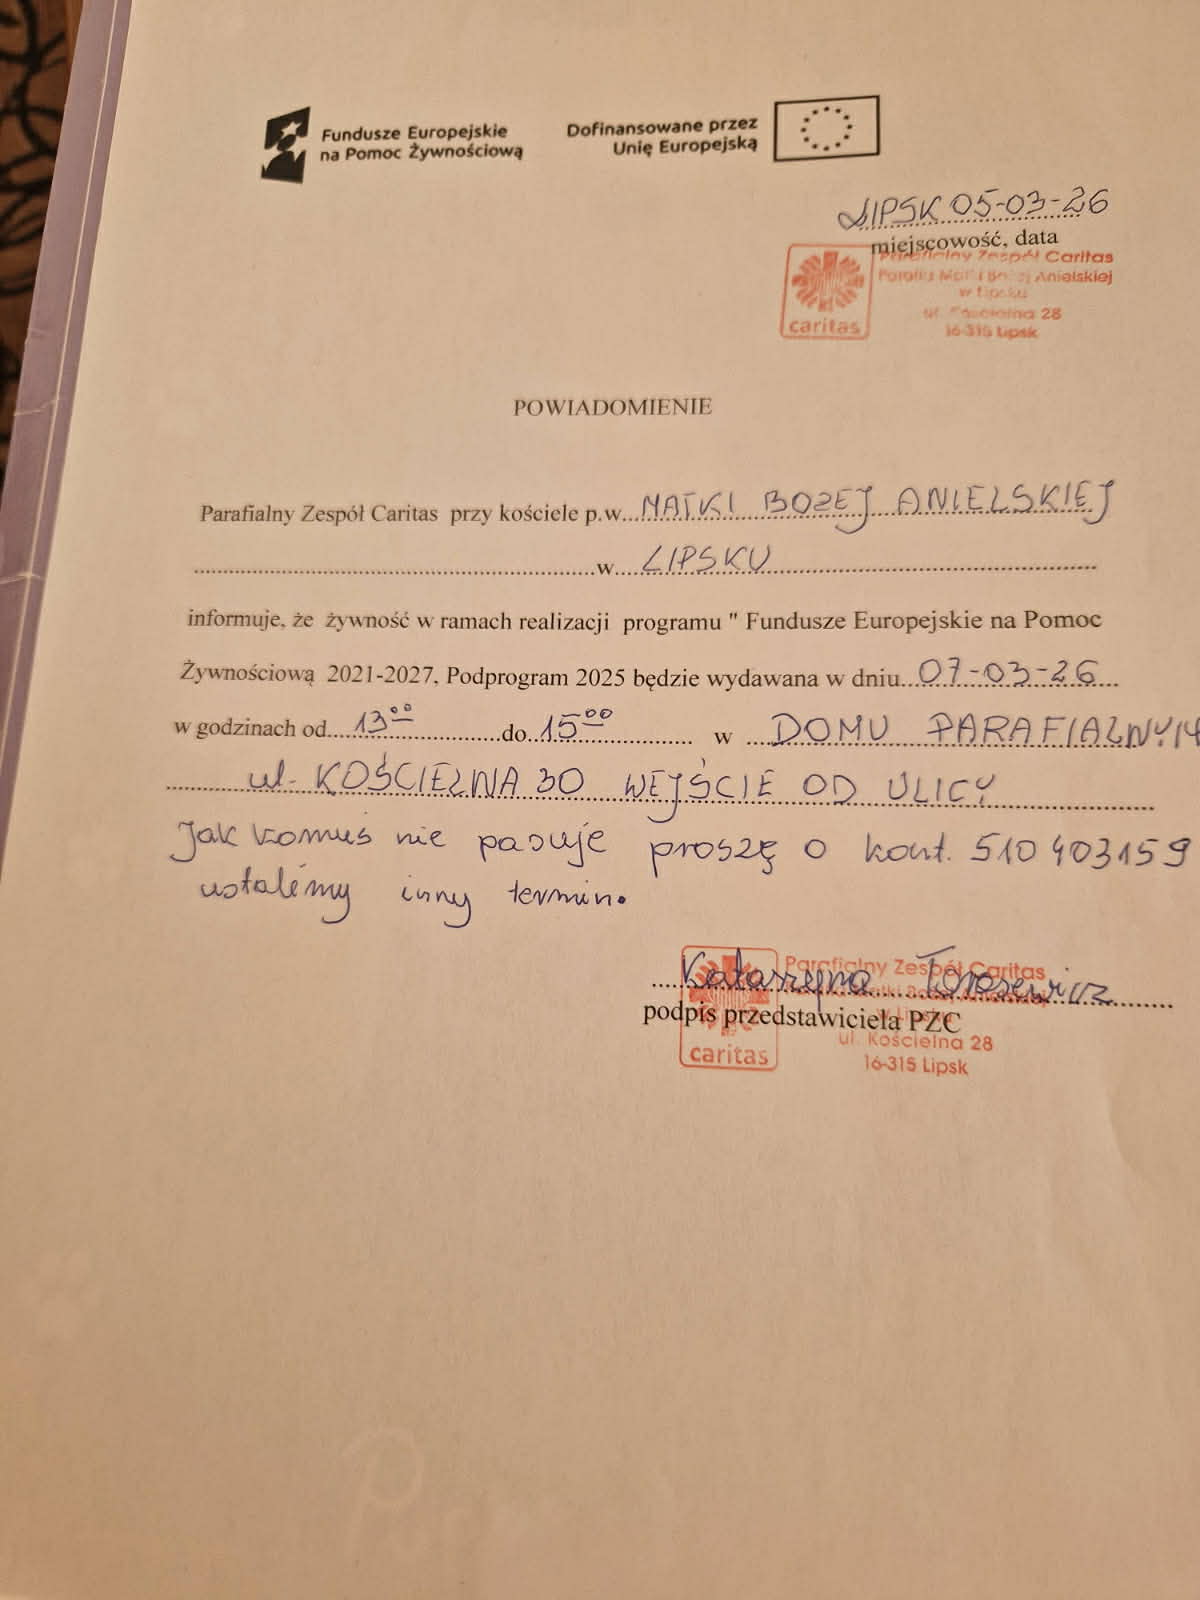 Fundusze Europejskie
na Pomoc Żywnościową
Dofinansowane przez
Unię Europejską
LIPSK 05-03-26
miejscowość, data
Parafialny Zespół Caritas
Parafia Matki Bożej Anielskiej
w Lipsku
ul. Kościelna 28
16-315 Lipsk
caritas
POWIADOMIENIE
Parafialny Zespół Caritas przy kościele p.w. MATKI BOZEJ ANIELSKIEJ
w LIPSKU
informuje, że żywność w ramach realizacji programu " Fundusze Europejskie na Pomoc
Żywnościową 2021-2027, Podprogram 2025 będzie wydawana w dniu 07-03-26
w godzinach od 13 00 do 15 00 w DOMU PARAFIALNYM
ul. KOŚCIELNA 30 WEJŚCIE OD ULICY
Jak komuś nie pasuje proszę o kont. 510 403159
ustalémy inny termin.
Katarzyna
Parafialny Zespół Caritas
podpis przedstawiciela PZC
ul. Kościelna 28
16-315 Lipsk
caritas